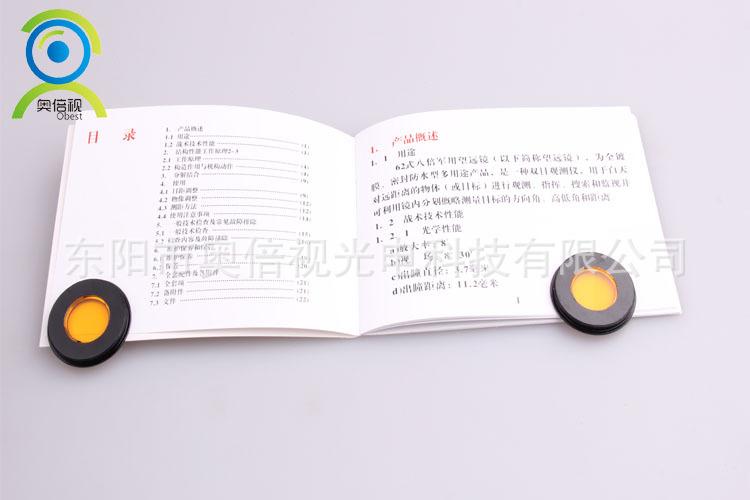 奥倍视
Obest
目 录
1. 产品概述
1.1 用途
1.2 战术技术性能 (1)
2. 结构性能工作原理2-3
2.1 工作原理 (4)
2.2 构造作用与机构动作 (6)
3. 分解结合
4. 使用
4.1 目距调整 (9)
4.2 物像调整 (9)
4.3 测距方法
4.4 使用注意事项
5. 一般技术检查及常见故障排除
5.1 一般技术检查
5.2 检查内容及故障排除
6. 维护保养和
6.1 维护保养
7. 全套配件及备附件
7.1 全套
7.2 备附件 (21)
7.3 文件 (22)
1. 产品概述
1.1 用途
62式八倍军用望远镜(以下简称望远镜),为全镀
膜、密封防水型多用途产品,是一种双目观测仪,用于白天
对远距离的物体(或目标)进行观测、指挥、搜索和监视并
可利用镜内分划概略测量目标的方向角、高低角和距离
1.2 战术技术性能
1.2.1 光学性能
a)放大率:8
b)视 场:8°30′
c)出瞳直径:3.7毫米
d)出瞳距离:11.2毫米
1
东阳市奥倍视光电科技有限公司